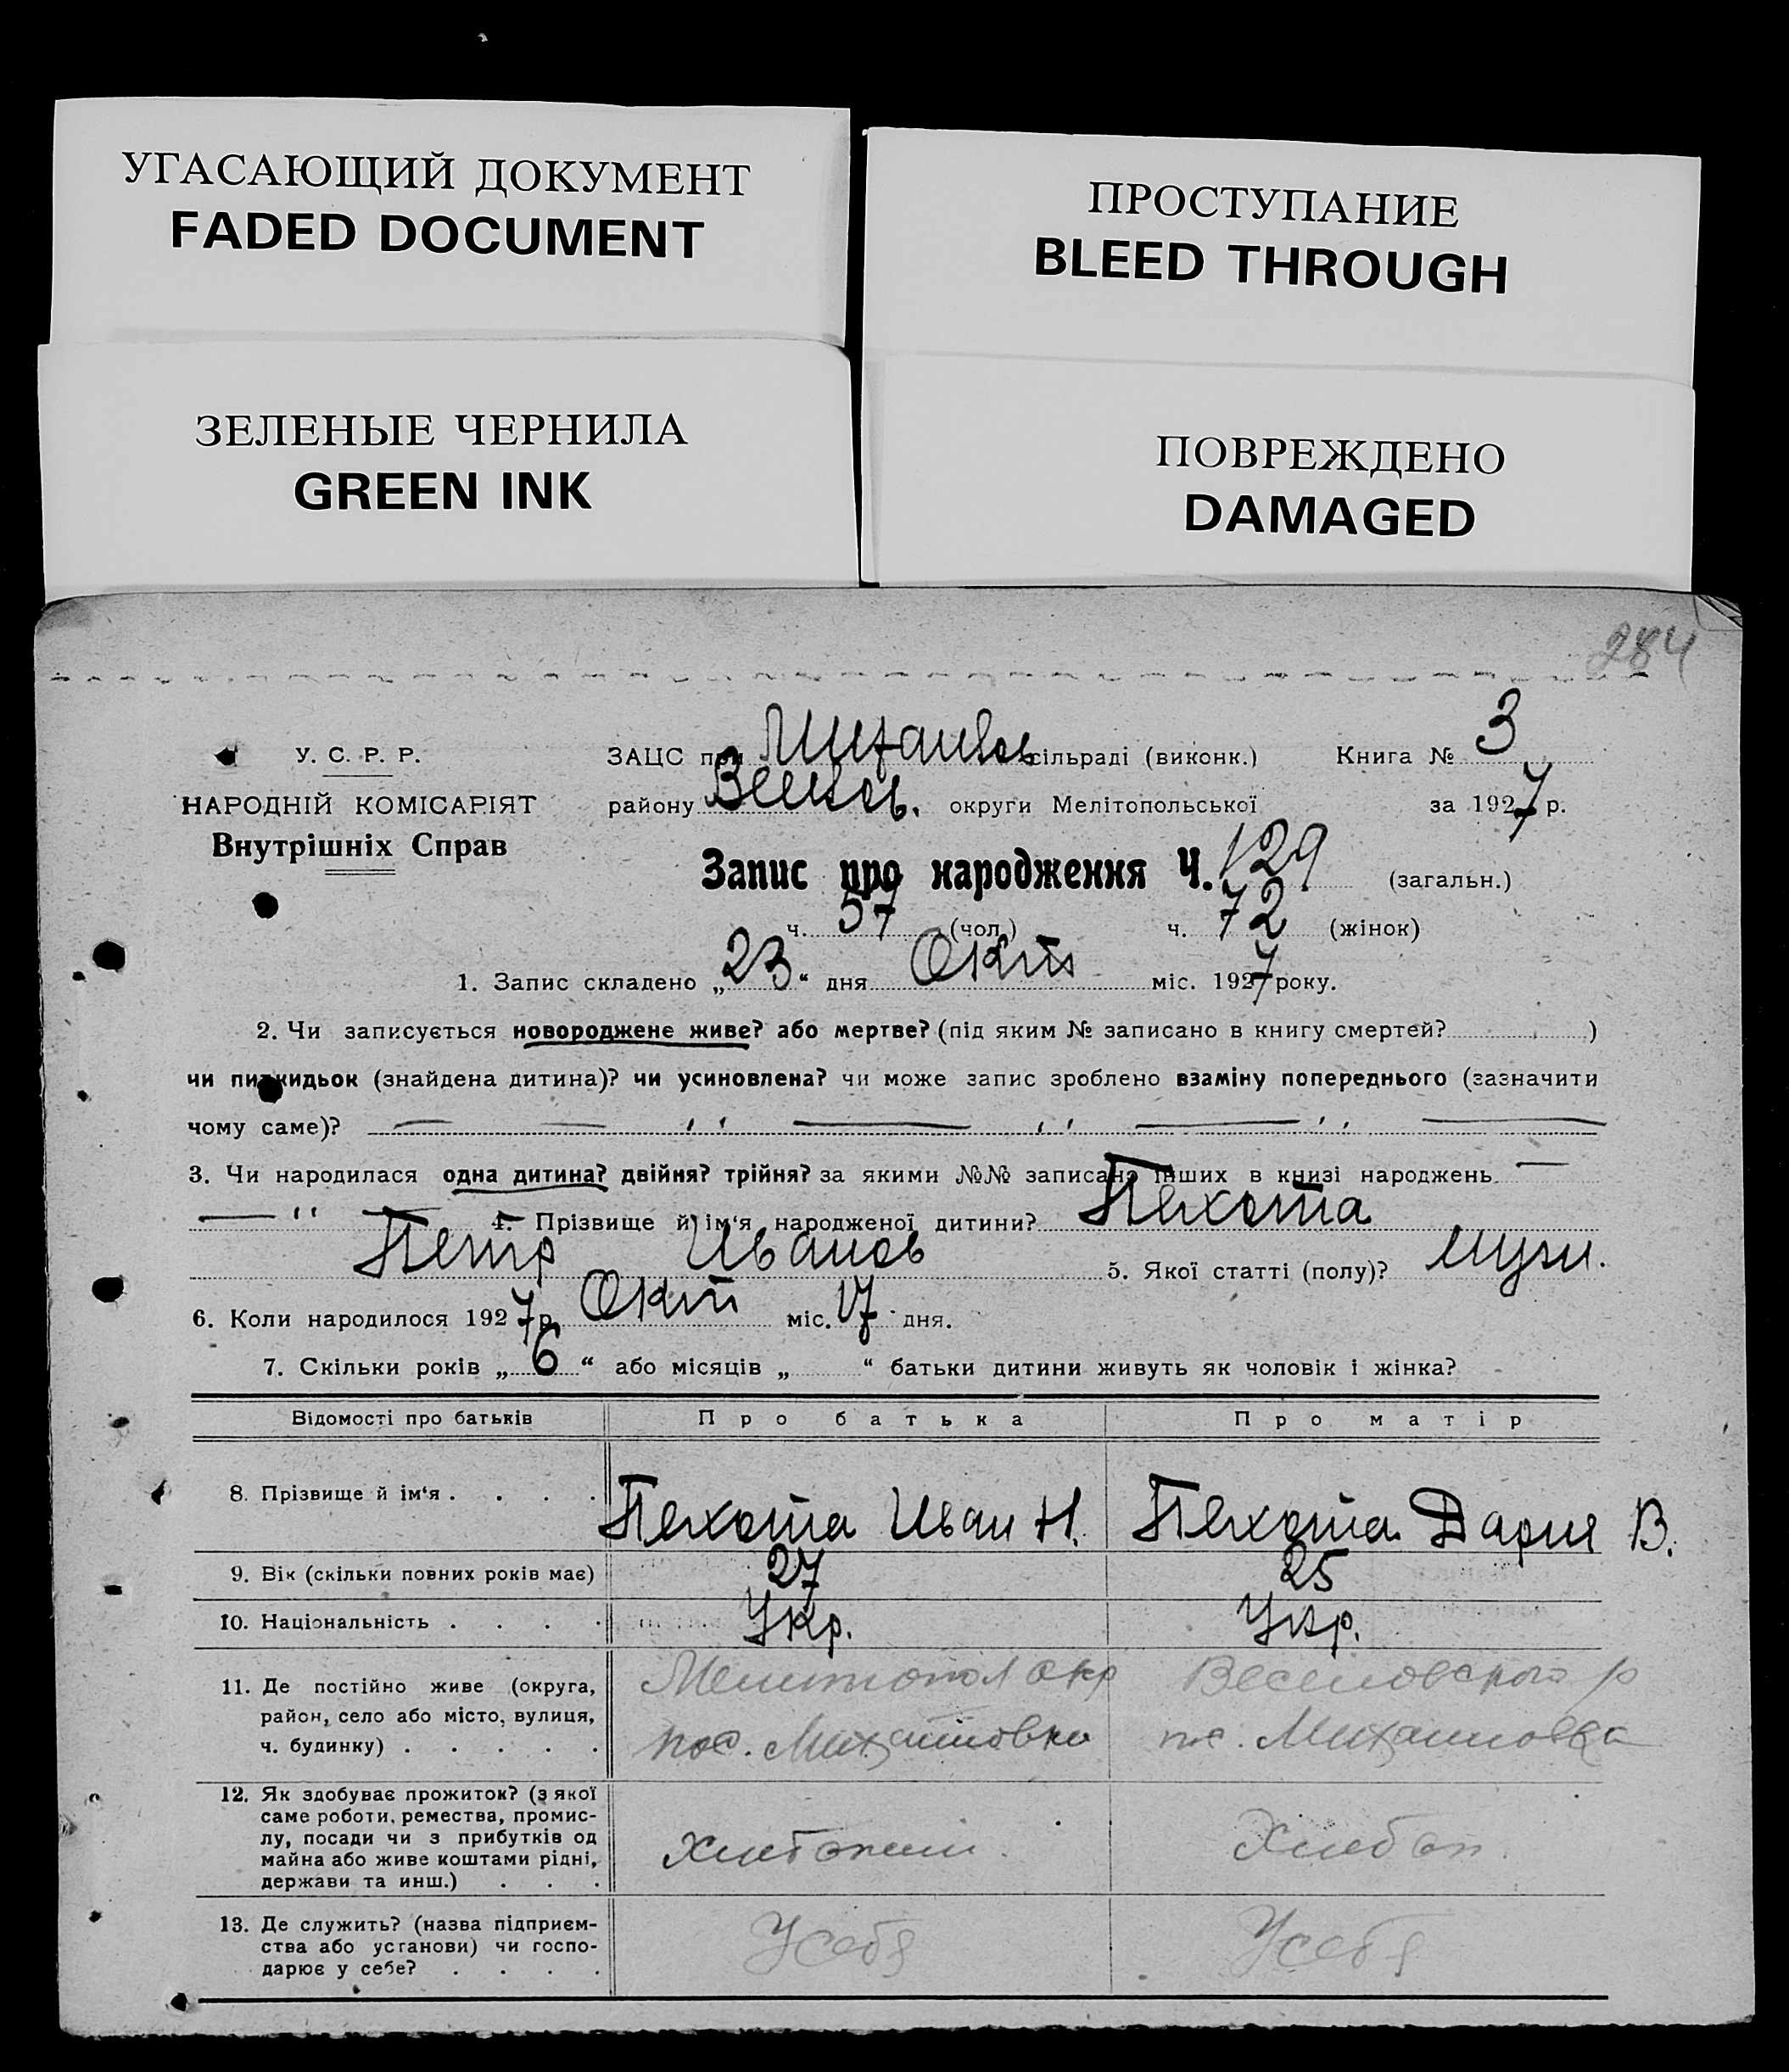 УГАСАЮЩИЙ ДОКУМЕНТ
FADED DOCUMENT
ПРОСТУПАНИЕ
BLEED THROUGH
ЗЕЛЕНЫЕ ЧЕРНИЛА
GREEN INK
ПОВРЕЖДЕНО
DAMAGED
284
У. С. Р. Р.
НАРОДНІЙ КОМІСАРІЯТ
Внутрішніх Справ
ЗАЦС при Михайлов сільраді (виконк.) Книга № 3
району округи Мелітопольської за 1927 р.
Запис про народження Ч. 129 (загальн.)
ч. 57 (чол.) ч. 72 (жінок)
1. Запис складено „23“ дня Окт міс. 1927 року.
2. Чи записується новороджене живе? або мертве? (під яким № записано в книгу смертей? )
чи пидкидьок (знайдена дитина)? чи усиновлена? чи може запис зроблено взаміну попереднього (зазначити
чому саме)? — — " — " — " —
3. Чи народилася одна дитина? двійня? трійня? за якими №№ записана інших в книзі народжень —
— " — 4. Прізвище й ім‘я народженої дитини? Пехота
Петр Иванов 5. Якої статті (полу)? муж.
6. Коли народилося 1927 р. Окт міс. 17 дня.
7. Скільки років „6“ або місяців „ “ батьки дитини живуть як чоловік і жінка?
Відомості про батьків Про батька Про матір
8. Прізвище й ім‘я . . . . Пехота Иван Н. Пехота Дария В.
9. Вік (скільки повних років має) 27 25
10. Національність . . . . Укр. Укр.
11. Де постійно живе (округа, Мелитопол окр Веселовского р
район, село або місто, вулиця,
ч. будинку) . . . . . пос. Михайловка пос. Михайловка
12. Як здобуває прожиток? (з якої
саме роботи, ремества, промис-
лу, посади чи з прибутків од
майна або живе коштами рідні, Хлебопаш. Хлебоп.
держави та инш.) . . .
13. Де служить? (назва підприєм-
ства або установи) чи госпо- У себя У себя
дарює у себе? . . . .